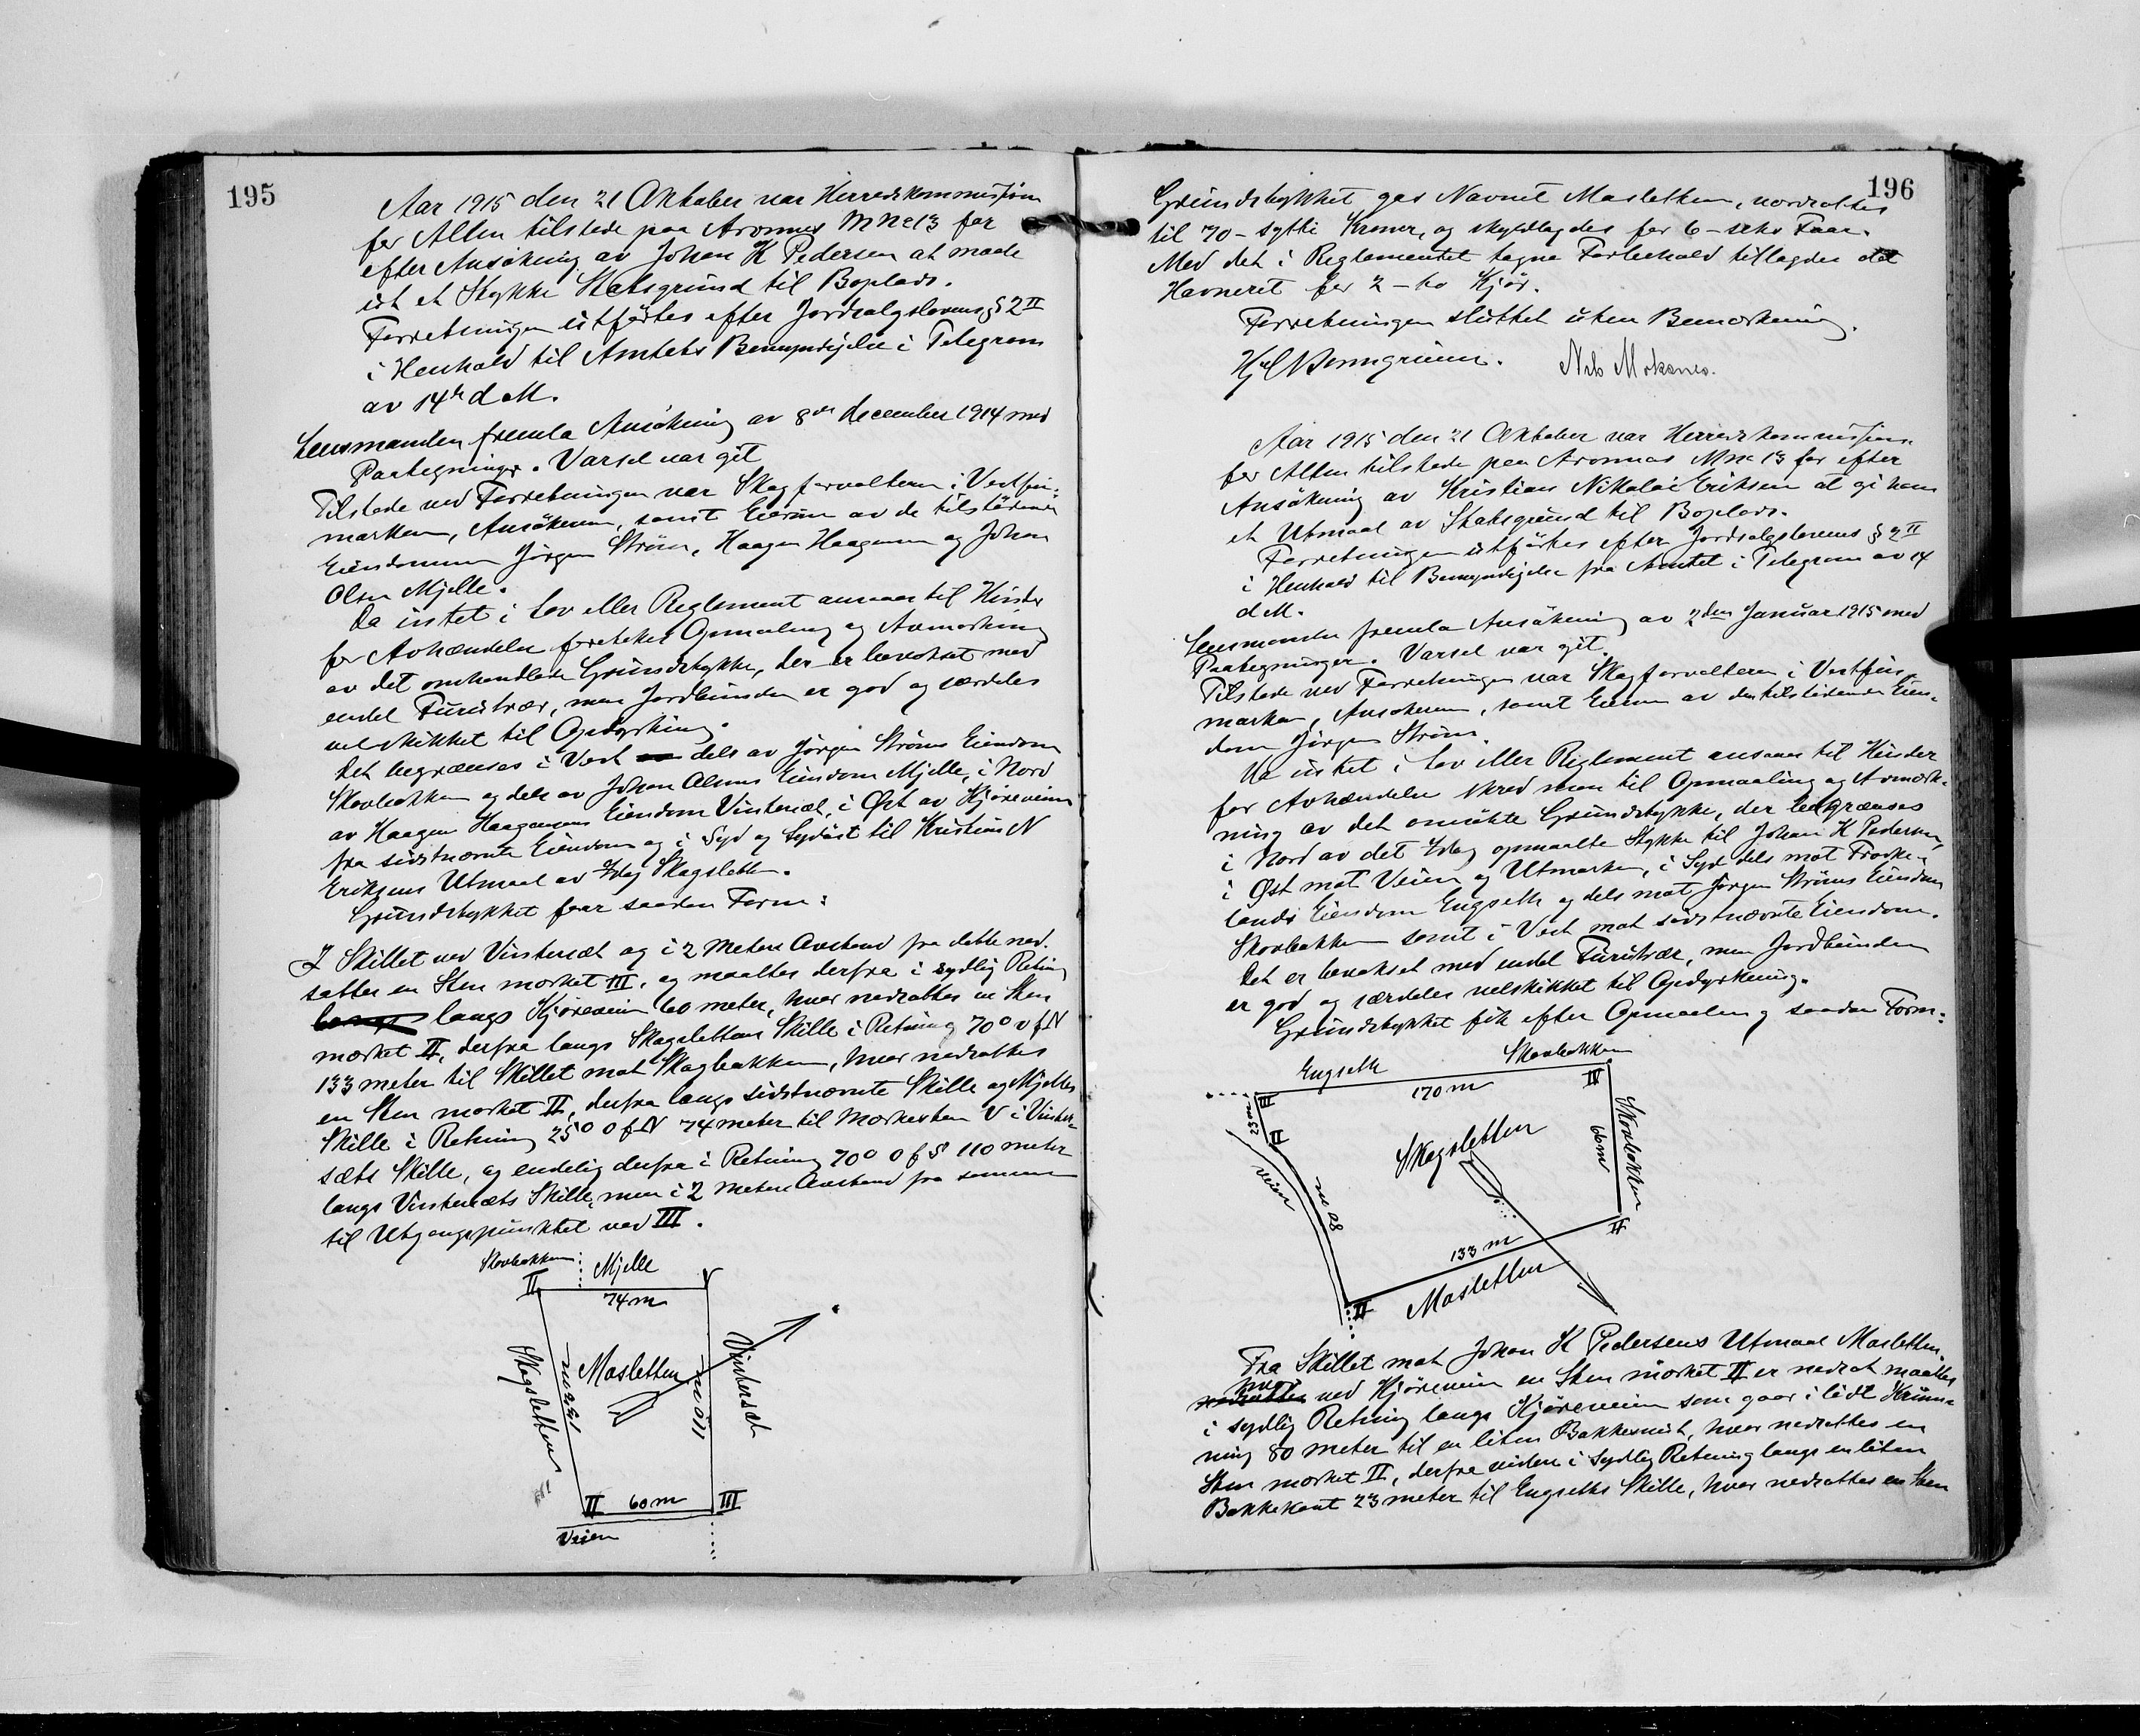 195
Aar 1915 den 21 Oktober var Herredskommissionen
for Alten tilstede paa Aronnes M No 13 for
efter Ansökning av Johan K Pedersen at maale
ut et Stykke Statsgrund til Boplads.
Forretningen utförtes efter Jordsalgslovens § 2 II
i Henhold til Amtets Bemyndigelse i Telegram
av 14de d M.
Lensmanden fremla Ansökning av 8de december 1914 med
Paategninger. Varsel var git
Tilstede ved Forretningen var Skogforvalteren i Vestfin-
marken, Ansökeren, samt Eierne av de tilstödende
Eiendommer Jörgen Ström, Haagen Haagensen og Johan
Olsen Mjelle.
Da intet i Lov eller Reglement ansaaes til Hinder
for Avhændelse foretokes Opmaaling og Avmerkning
av det omhandlede Grundstykke, der er bevokset med
endel Furutrær, men Jordbunden er god og særdeles
vel skikket til Opdyrkning.
Det begrænses i Vest dels av Jörgen Ströms Eiendom
Skovbakken og dels av Johan Olsens Eiendom Mjelle, i Nord
av Haagen Haagensens Eiendom Vintersæt, i Öst av Kjöreveien
fra sidstnævnte Eiendom og i Syd og Sydöst til Kristian N
Eriksens Utmaal av Idag Skogsletten.
Grundstykket faar saadan Form:
I Skillet ved Vintersæt og i 2 Meters Avstand fra dette ned-
sattes en Sten merket III, og maaltes derfra i sydlig Retning
langs langs Kjöreveien 60 meter, hvor nedsattes en Sten
merket II, derfra langs Skogslettens Skille i Retning 70° v f N
133 meter til Skillet mot Skogbakken, hvor nedsattes
en Sten merket II, derfra langs sidstnævnte Skille og Mjelles
Skille i Retning 25° O f N 74 meter til Merkesten V i Vinter-
sæts Skille, og endelig derfra i Retning 70° O f S 110 meter
langs Vintersæts Skille, men i 2 Meters Avstand fra samme
til Utgangspunktet ved III.
Skovbakken Mjelle
II V
74 m
Skogsletten
133 m
Mosletten
110 m
Vintersæt
II 60 m III
Veien
196
Grundstykket gas Navnet Mosletten, værdsattes
til 70 - sytti Kroner, og skyldlagdes for 6 - seks Faar.
Med det i Reglementet tagne Forbehold tillagdes det
Havneret for 2 - to Kjör.
Forretningen sluttet uten Bemerkning.
Nils Moksnes.
Aar 1915 den 21 Oktober var Herredskommissionen
for Alten tilstede paa Aronnes M No 13 for efter
Ansökning av Kristian Nikolai Eriksen at gi ham
et Utmaal av Statsgrund til Boplads.
Forretningen utförtes efter Jordsalgslovens § 2 II
i Henhold til Bemyndigelse fra Amtet i Telegram av 14
d M.
Lensmanden fremla Ansökning av 2den Januar 1915 med
Paategninger. Varsel var git.
Tilstede ved Forretningen var Skogforvalteren i Vestfin-
marken, Ansökeren, samt Eieren av den tilstödende Eien-
dom Jörgen Ström.
Da intet i Lov eller Reglement ansaaes til Hinder
for Avhændelse skred man til Opmaaling og Avmerk-
ning av det omsökte Grundstykke, der begrænses
i Nord av det Idag opmaalte Stykke til Johan K Pedersen,
i Öst mot Veien og Utmarken, i Syd dels mot
Eiendom Engseth og dels mot Jörgen Ströms Eiendom
Skovbakken samt i Vest mot sidstnævnte Eiendom.
Det er bevokset med endel Furutrær, men Jordbunden
er god og særdeles velskikket til Opdyrkning.
Grundstykket fik efter Opmaaling saadan Form:
Engseth Skovbakken
170 m
II IV
23 m
II
Veien
80 m
Skogsletten
Skovbakken
66 m
133 m
II
II
Mosletten
Fra Skillet mot Johan K Pedersens Utmaal Mosletten,
hvor
nedsattes ved Kjöreveien en Sten merket II er nedsat maaltes
i sydlig Retning langs Kjöreveien som gaar i lidt Krum-
ning 80 meter til en liten Bakkenist, hvor nedsattes en
Sten merket II, derfra videre i Sydlig Retning langs en liten
Bakkekant 23 meter til Engseths Skille, hvor nedsattes en Sten